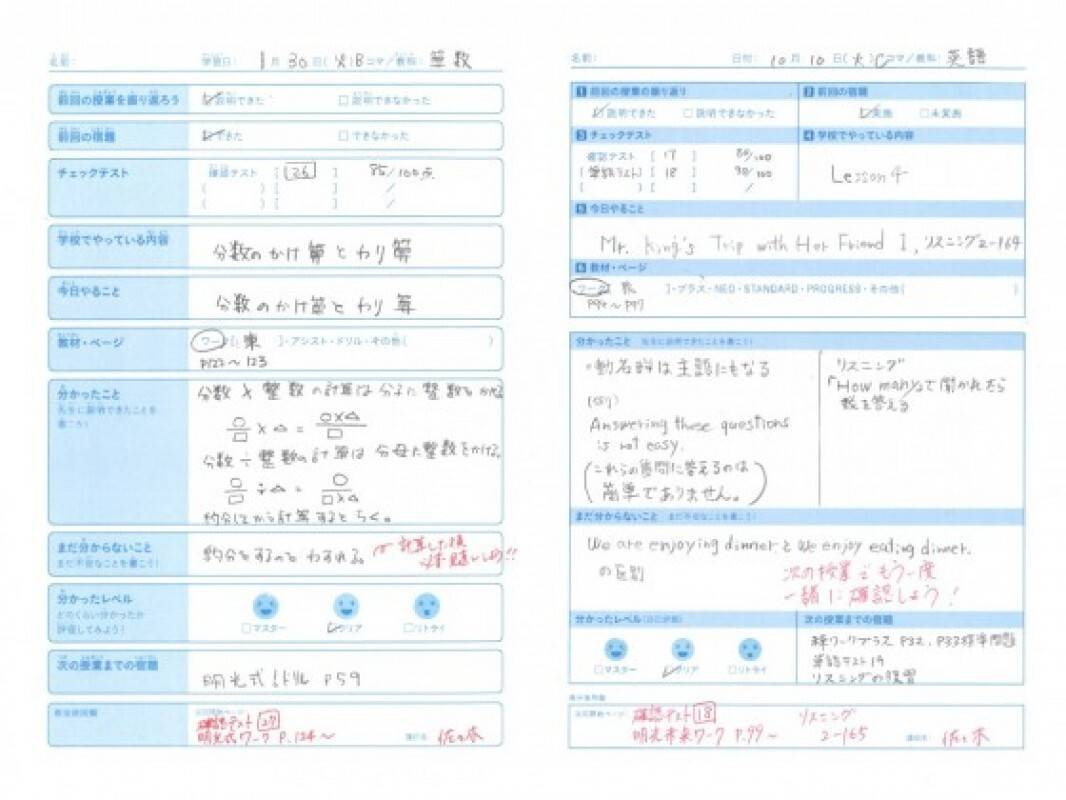 名前:
学習日: 1月30日(火)Bコマ/教科: 算数
前回の授業を振り返ろう
説明できた □説明できなかった
前回の宿題
できた □できなかった
チェックテスト
確認テスト [ 26 ] 85/100点
( ) [ ] /
( ) [ ] /
学校でやっている内容
分数のかけ算とわり算
今日やること
分数のかけ算とわり算
教材・ページ
ワーク[ 東 ]・アシスト・ドリル・その他( )
P122〜123
分かったこと
先生に説明できたことを
書こう!
分数×整数の計算は分子に整数をかける
○/□ × △ = ○×△/□
分数÷整数の計算は分母に整数をかける。
○/□ ÷ △ = ○/□×△
約分してから計算するとらく。
まだ分からないこと
まだ不安なことを書こう!
約分をするのをわすれる。
計算した後
見直ししよう!!
分かったレベル
どのくらい分かったか
評価してみよう!
□マスター クリア □リトライ
次の授業までの宿題
明光式!ドリル P59
確認テスト 27
明光式ワーク P.124〜
佐々木
名前:
日付: 10月10日(火)Cコマ/教科: 英語
1 前回の授業の振り返り
説明できた □説明できなかった
2 前回の宿題
実施 □未実施
3 チェックテスト
確認テスト [ 17 ] /100
(単語テスト) [ 18 ] 90/100
( ) [ ] /
4 学校でやっている内容
Lesson 4
5 今日やること
Mr. King's Trip with Her Friend 1, リスニング2-164
6 教材・ページ
ワーク ]・プラス・NEO・STANDARD・PROGRESS・その他( )
分かったこと 先生に説明できたことを書こう!
・動名詞は主語にもなる
(例)
Answering these questions
is not easy.
(これらの質問に答えるのは
簡単でありません。)
リスニング
「How many」で聞かれたら
数を答える
まだ分からないこと まだ不安なことを書こう!
We are enjoying dinner.と We enjoy eating dinner.
の区別
次の授業でもう一度
一緒に確認しよう!
分かったレベル(自己評価)
□マスター クリア □リトライ
次の授業までの宿題
ワークプラス P32、P33標準問題
単語テスト19
リスニングの復習
確認テスト 18
明光本来ワーク P.99〜
リスニング
2-165
佐々木